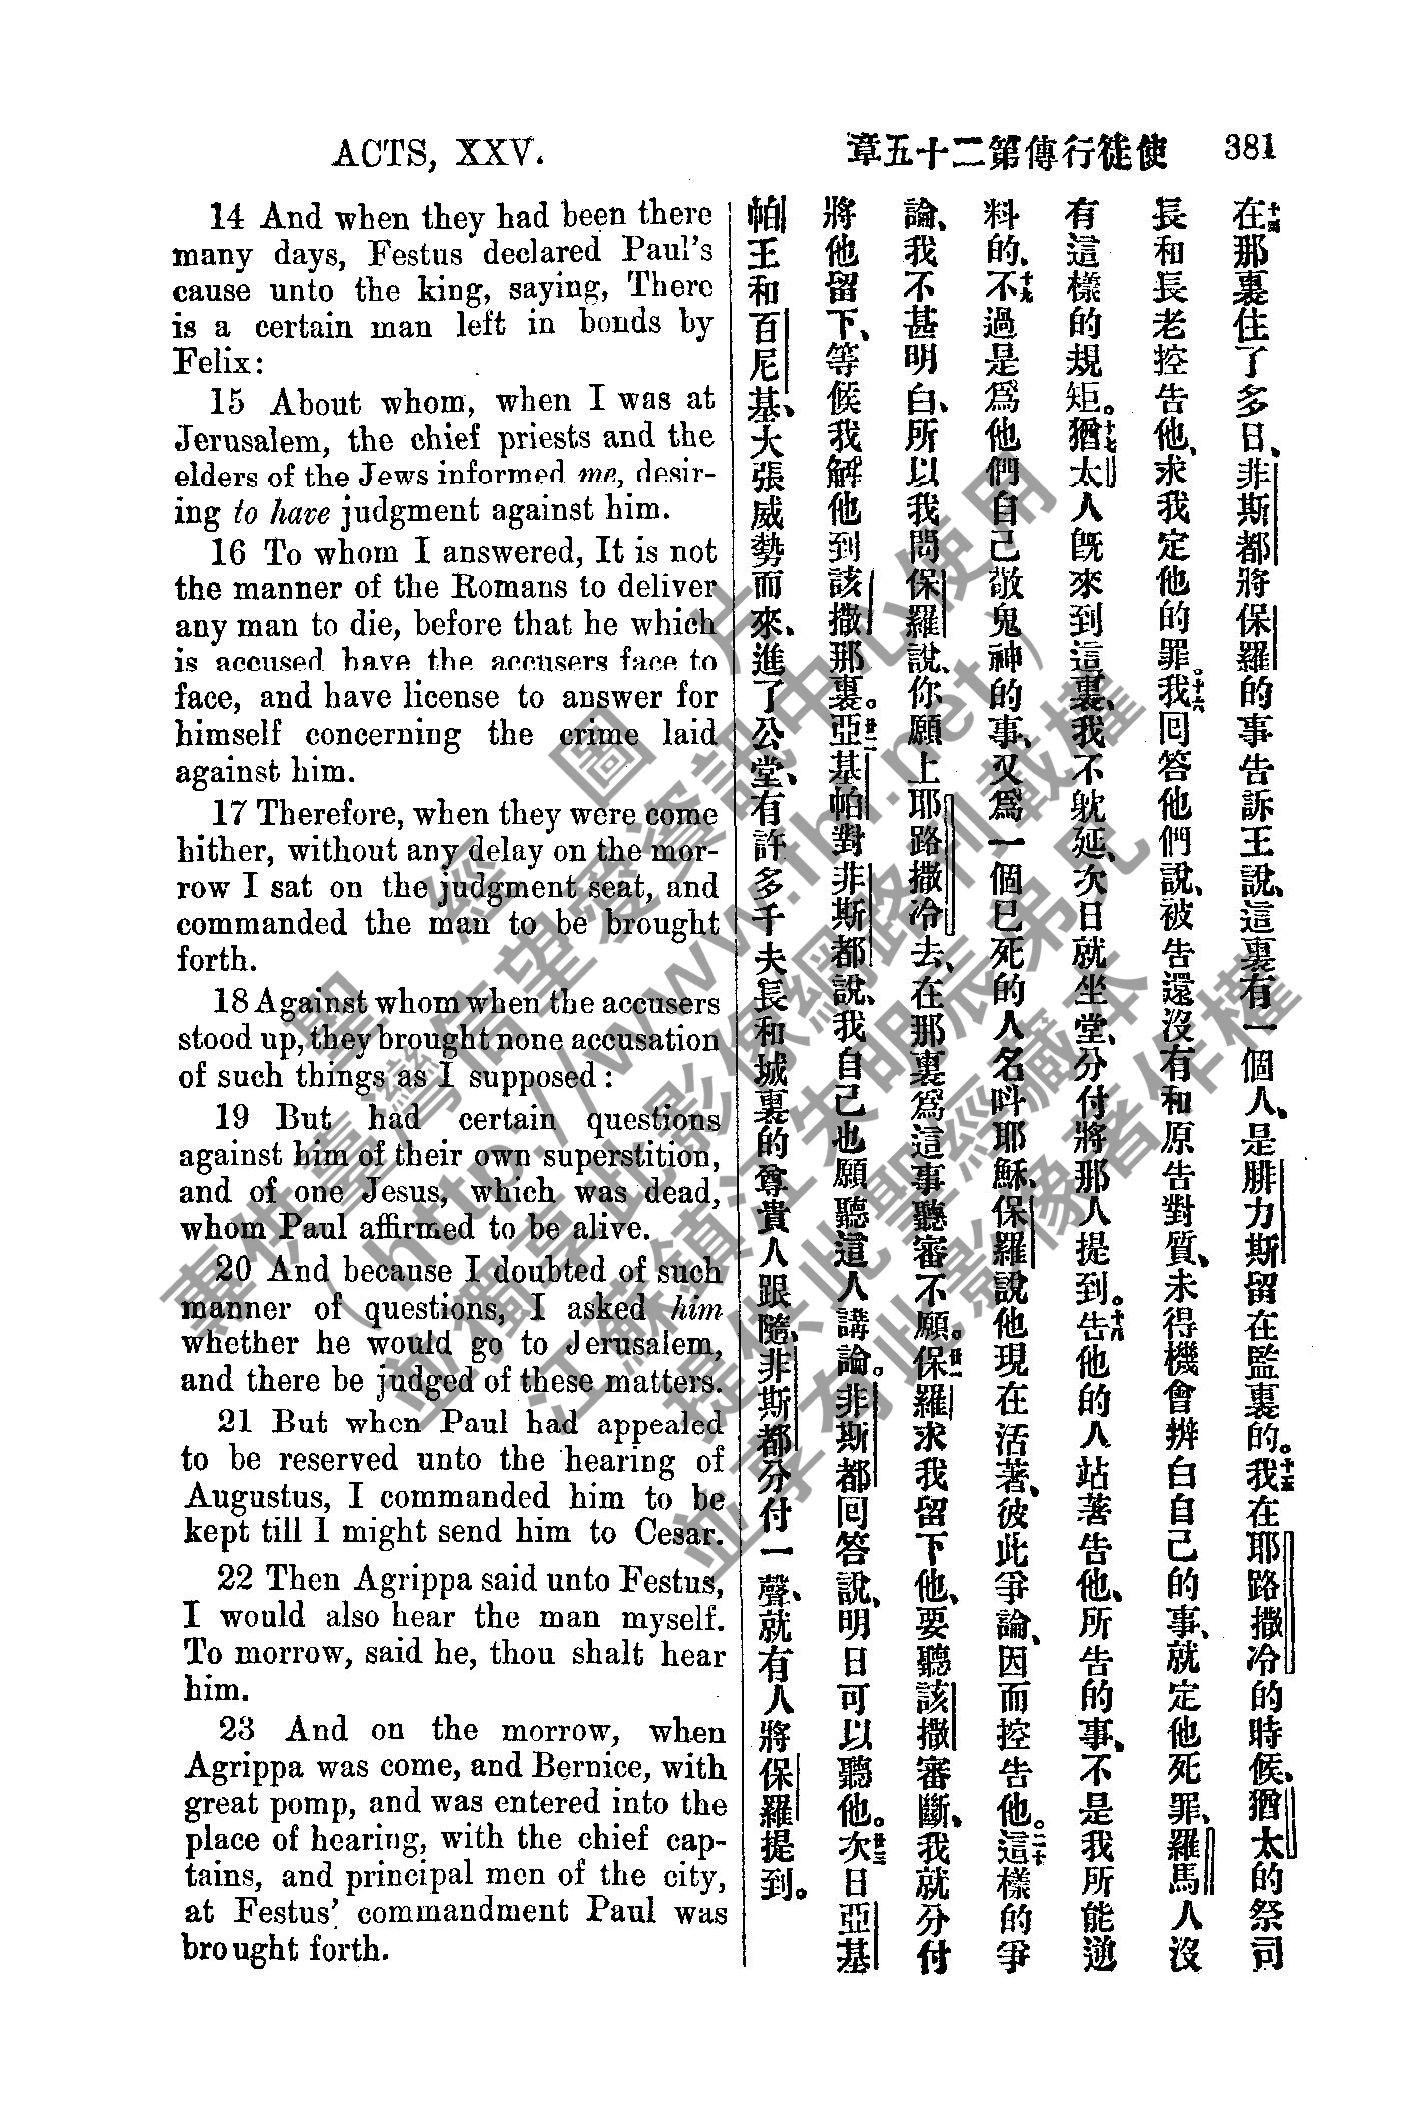 ACTS, XXV.
章五十二第傳行徒使
381
14 And when they had been there
many days, Festus declared Paul's
cause unto the king, saying, There
is a certain man left in bonds by
Felix:
15 About whom, when I was at
Jerusalem, the chief priests and the
elders of the Jews informed me, desir-
ing to have judgment against him.
16 To whom I answered, It is not
the manner of the Romans to deliver
any man to die, before that he which
is accused have the accusers face to
face, and have license to answer for
himself concerning the crime laid
against him.
17 Therefore, when they were come
hither, without any delay on the mor-
row I sat on the judgment seat, and
commanded the man to be brought
forth.
18 Against whom when the accusers
stood up, they brought none accusation
of such things as I supposed:
19 But had certain questions
against him of their own superstition,
and of one Jesus, which was dead,
whom Paul affirmed to be alive.
20 And because I doubted of such
manner of questions, I asked him
whether he would go to Jerusalem,
and there be judged of these matters.
21 But when Paul had appealed
to be reserved unto the hearing of
Augustus, I commanded him to be
kept till I might send him to Cesar.
22 Then Agrippa said unto Festus,
I would also hear the man myself.
To morrow, said he, thou shalt hear
him.
23 And on the morrow, when
Agrippa was come, and Bernice, with
great pomp, and was entered into the
place of hearing, with the chief cap-
tains, and principal men of the city,
at Festus' commandment Paul was
brought forth.
十四在那裏住了多日、非斯都將保羅的事告訴王說、這裏有一個人、是腓力斯留在監裏的。十五我在耶路撒冷的時候、猶太的祭司
長和長老控告他、求我定他的罪。十六我回答他們說、被告還沒有和原告對質、未得機會辨白自己的事、就定他死罪、羅馬人沒
有這樣的規矩。十七猶太人旣來到這裏、我不躭延、次日就坐堂、分付將那人提到。十八告他的人站著告他、所告的事、不是我所能逆
料的、十九不過是爲他們自己敬鬼神的事、又爲一個已死的人名呌耶穌、保羅說他現在活著、彼此爭論、因而控告他。二十這樣的爭
論、我不甚明白、所以我問保羅說、你願上耶路撒冷去、在那裏爲這事聽審不願。廿一保羅求我留下他、要聽該撒審斷、我就分付
將他留下、等候我解他到該撒那裏。廿二亞基帕對非斯都說、我自己也願聽這人講論。非斯都回答說、明日可以聽他。廿三次日亞基
帕王和百尼基、大張威勢而來、進了公堂、有許多千夫長和城裏的尊貴人跟隨、非斯都分付一聲、就有人將保羅提到。
聖經圖片
專供臺灣信望愛資訊中心使用
（http://www.fhl.net）
並獨享此影像網路刊載權
江蘇鎮江朱明辰弟兄
提供此聖經藏本
並享有此影像著作權